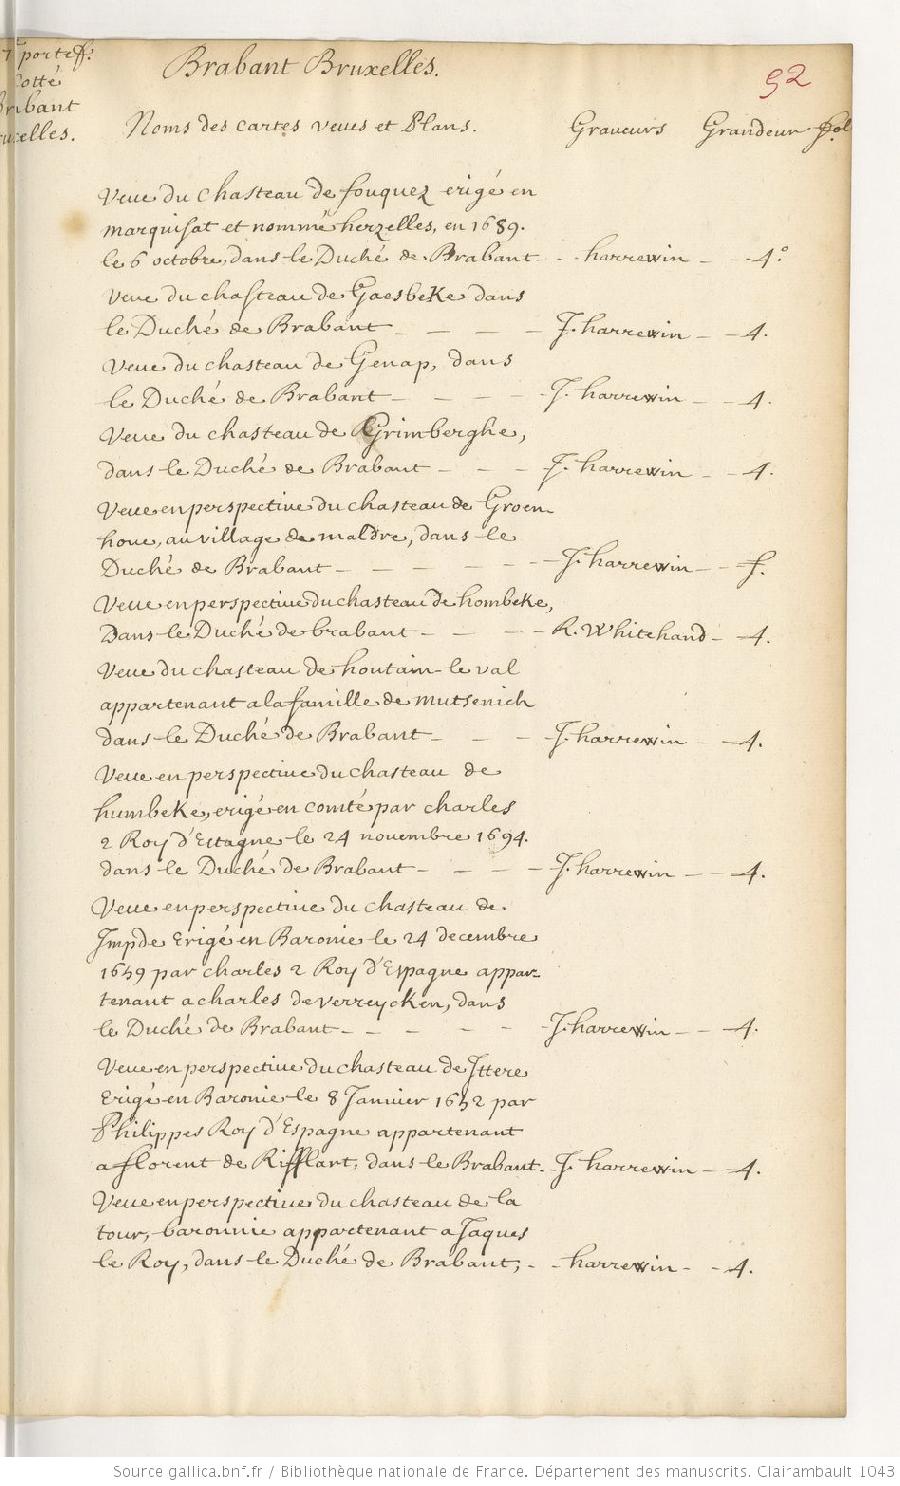 portef:
Cotté
Brabant
Bruxelles.
Brabant Bruxelles.
92
Noms des cartes veues et Plans. Graveurs Grandeur fol
Veue du chasteau de fouquez erigé en
marquisat et nommé herzelles, en 1689.
le 6 octobre, dans le Duché de Brabant - - harrewin - - 4.°
Veue du chasteau de Gaesbeke dans
le Duché de Brabant - - - - J. harrewin - - 4.
Veue du chasteau de Genap, dans
le Duché de Brabant - - - - J. harrewin - - 4.
Veue du chasteau de Grimberghe,
dans le Duché de Brabant - - - J. harrewin - - 4.
Veue en perspective du chasteau de Groen
houe, au village de maldre, dans le
Duché de Brabant - - - - - - J. harrewin - - f.
Veue en perspective du chasteau de hombeke,
Dans le Duché de brabant - - - - R. Whitehand - - 4.
Veue du chasteau de houtain-le val
appartenant a la famille de mutsenich
dans le Duché de Brabant - - - J. harrewin - - 4.
Veue en perspective du chasteau de
humbeke, erigé en comté par charles
2 Roy d'Espagne le 24 novembre 1694.
dans le Duché de Brabant - - - - J. harrewin - - 4.
Veue en perspective du chasteau de
Impde Erigé en Baronie le 24 decembre
1659 par charles 2 Roy d'Espagne appar-
tenant a charles de verreycken, dans
le Duché de Brabant - - - - - J. harrewin - - 4.
Veue en perspective du chasteau de Ittere
Erigé en Baronie le 8 Janvier 1652 par
Philippes Roy d'Espagne appartenant
a florent de Rifflart, dans le Brabant. J. harrewin - - 4.
Veue en perspective du chasteau de la
tour, baronnie appartenant a Jaques
le Roy, dans le Duché de Brabant; - - harrewin - - 4.
Source gallica.bnf.fr / Bibliothèque nationale de France. Département des manuscrits. Clairambault 1043